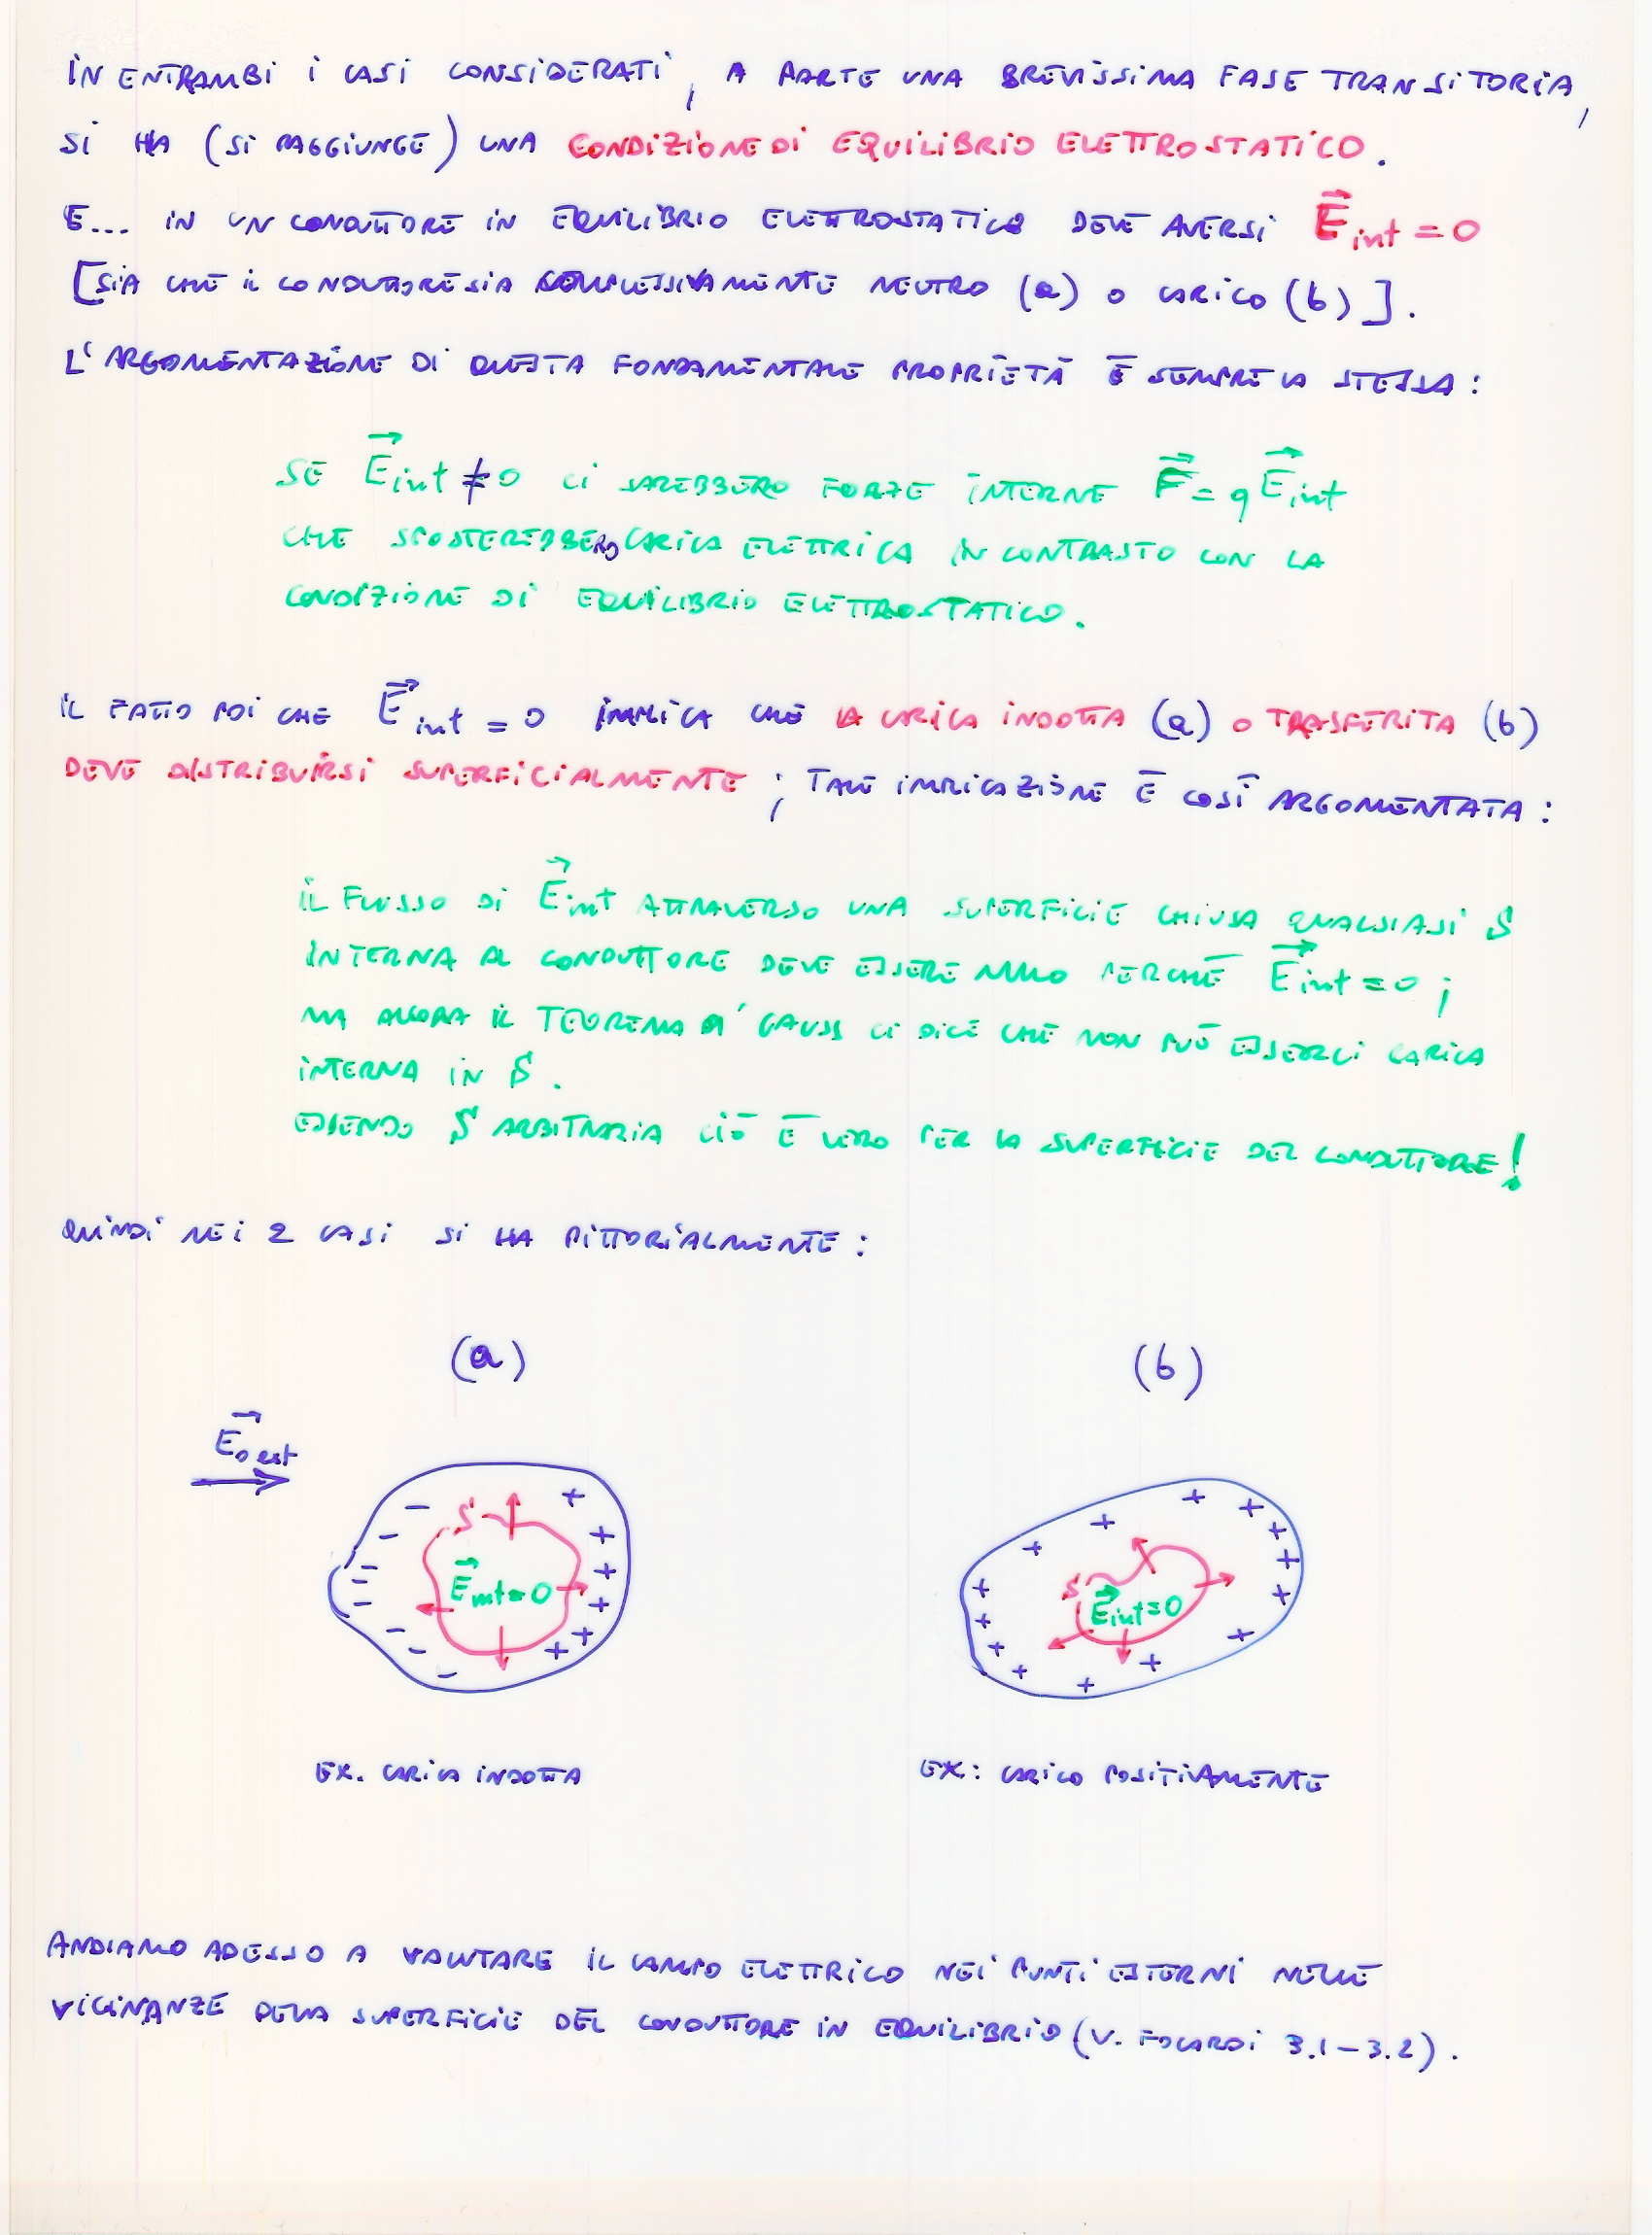 IN ENTRAMBI I CASI CONSIDERATI, A PARTE UNA BREVISSIMA FASE TRANSITORIA,
SI HA (SI RAGGIUNGE) UNA CONDIZIONE DI EQUILIBRIO ELETTROSTATICO.
E... IN UN CONDUTTORE IN EQUILIBRIO ELETTROSTATICO DEVE AVERSI E⃗int = 0
[SIA CHE IL CONDUTTORE SIA COMPLESSIVAMENTE NEUTRO (a) O CARICO (b)].
L'ARGOMENTAZIONE DI QUESTA FONDAMENTALE PROPRIETÀ È SEMPRE LA STESSA:
SE E⃗int ≠ 0 CI SAREBBERO FORZE INTERNE F⃗ = q E⃗int
CHE SPOSTEREBBERO CARICA ELETTRICA IN CONTRASTO CON LA
CONDIZIONE DI EQUILIBRIO ELETTROSTATICO.
IL FATTO POI CHE E⃗int = 0 IMPLICA CHE LA CARICA INDOTTA (a) O TRASFERITA (b)
DEVE DISTRIBUIRSI SUPERFICIALMENTE; TALE IMPLICAZIONE È COSÌ ARGOMENTATA:
IL FLUSSO DI E⃗int ATTRAVERSO UNA SUPERFICIE CHIUSA QUALSIASI S
INTERNA AL CONDUTTORE DEVE ESSERE NULLO PERCHÉ E⃗int = 0;
MA ALLORA IL TEOREMA DI GAUSS CI DICE CHE NON PUÒ ESSERCI CARICA
INTERNA IN S.
ESSENDO S ARBITRARIA CIÒ È VERO PER LA SUPERFICIE DEL CONDUTTORE!
QUINDI NEI 2 CASI SI HA PITTORIALMENTE:
(a) (b)
E⃗0 est
S
E⃗int = 0
S
E⃗int = 0
EX. CARICA INDOTTA
EX: CARICO POSITIVAMENTE
ANDIAMO ADESSO A VALUTARE IL CAMPO ELETTRICO NEI PUNTI ESTERNI NELLE
VICINANZE DELLA SUPERFICIE DEL CONDUTTORE IN EQUILIBRIO (V. FOCARDI 3.1-3.2).